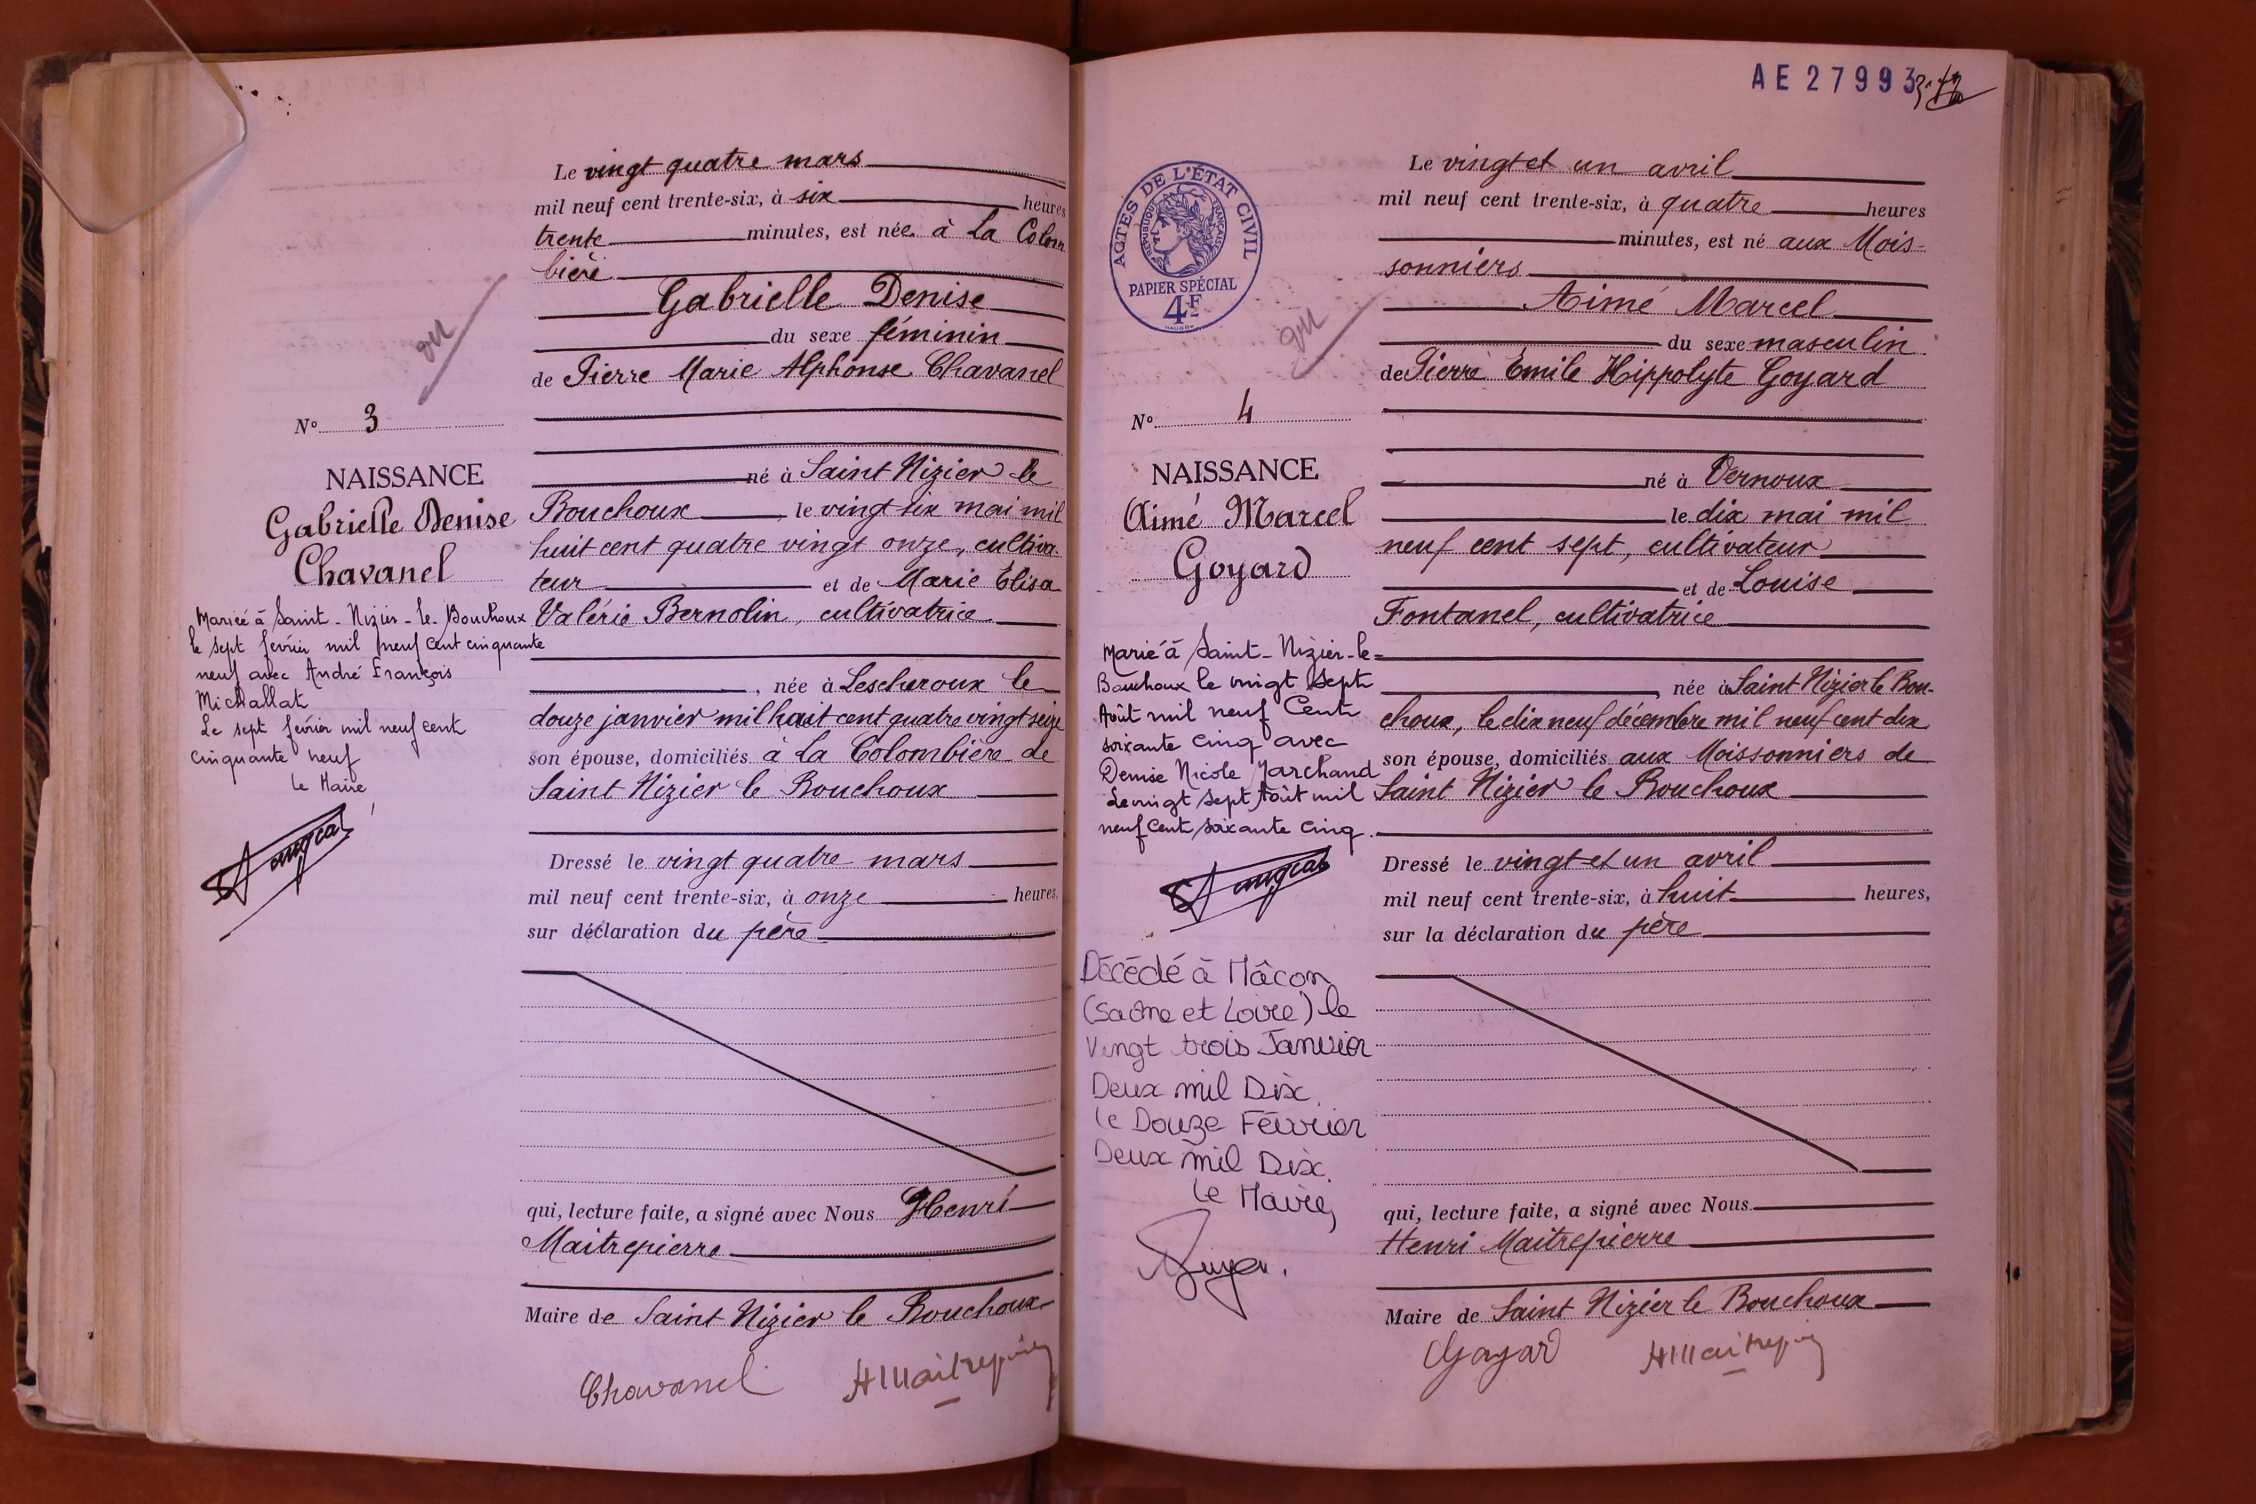 Le vingt quatre mars
mil neuf cent trente-six, à six heures
trente minutes, est née à La Colom
bière
Gabrielle Denise
du sexe féminin
de Pierre Marie Alphonse Chavanel
N° 3
NAISSANCE
Gabrielle Denise
Chavanel
né à Saint Nizier le
Bouchoux, le vingt six mai mil
huit cent quatre vingt onze, cultiva-
teur et de Marie Élisa
Valérie Bernolin, cultivatrice
, née à Lescheroux le
douze janvier mil huit cent quatre vingt seize
son épouse, domiciliés à La Colombière de
Saint Nizier le Bouchoux
Mariée à Saint-Nizier-le-Bouchoux
le sept février mil neuf cent cinquante
neuf avec André François
Michallat
Le sept février mil neuf cent
cinquante neuf
Le Maire,
Dressé le vingt quatre mars
mil neuf cent trente-six, à onze heures,
sur déclaration du père
qui, lecture faite, a signé avec Nous Henri
Maitrepierre
Maire de Saint Nizier le Bouchoux
Chavanel HMaitrepierre
AE 27993
ACTES DE L'ÉTAT CIVIL
RÉPUBLIQUE FRANÇAISE
PAPIER SPÉCIAL
4F
Le vingt et un avril
mil neuf cent trente-six, à quatre heures
minutes, est né aux Mois-
sonniers
Aimé Marcel
du sexe masculin
de Pierre Émile Hippolyte Goyard
N° 4
NAISSANCE
Aimé Marcel
Goyard
né à Vernoux
le dix mai mil
neuf cent sept, cultivateur
et de Louise
Fontanel, cultivatrice
, née à Saint Nizier le Bou-
choux, le dix neuf décembre mil neuf cent dix
son épouse, domiciliés aux Moissonniers de
Saint Nizier le Bouchoux
Marié à Saint-Nizier-le-
Bouchoux le vingt sept
Août mil neuf Cent
soixante cinq avec
Denise Nicole Marchand
Le vingt sept Août mil
neuf Cent soixante cinq.
Dressé le vingt et un avril
mil neuf cent trente-six, à huit heures,
sur la déclaration du père
Décédé à Mâcon
(Saône et Loire) le
Vingt trois Janvier
Deux mil Dix.
le Douze Février
Deux mil Dix.
Le Maire,
qui, lecture faite, a signé avec Nous
Henri Maitrepierre
Maire de Saint Nizier le Bouchoux
Goyard HMaitrepierre